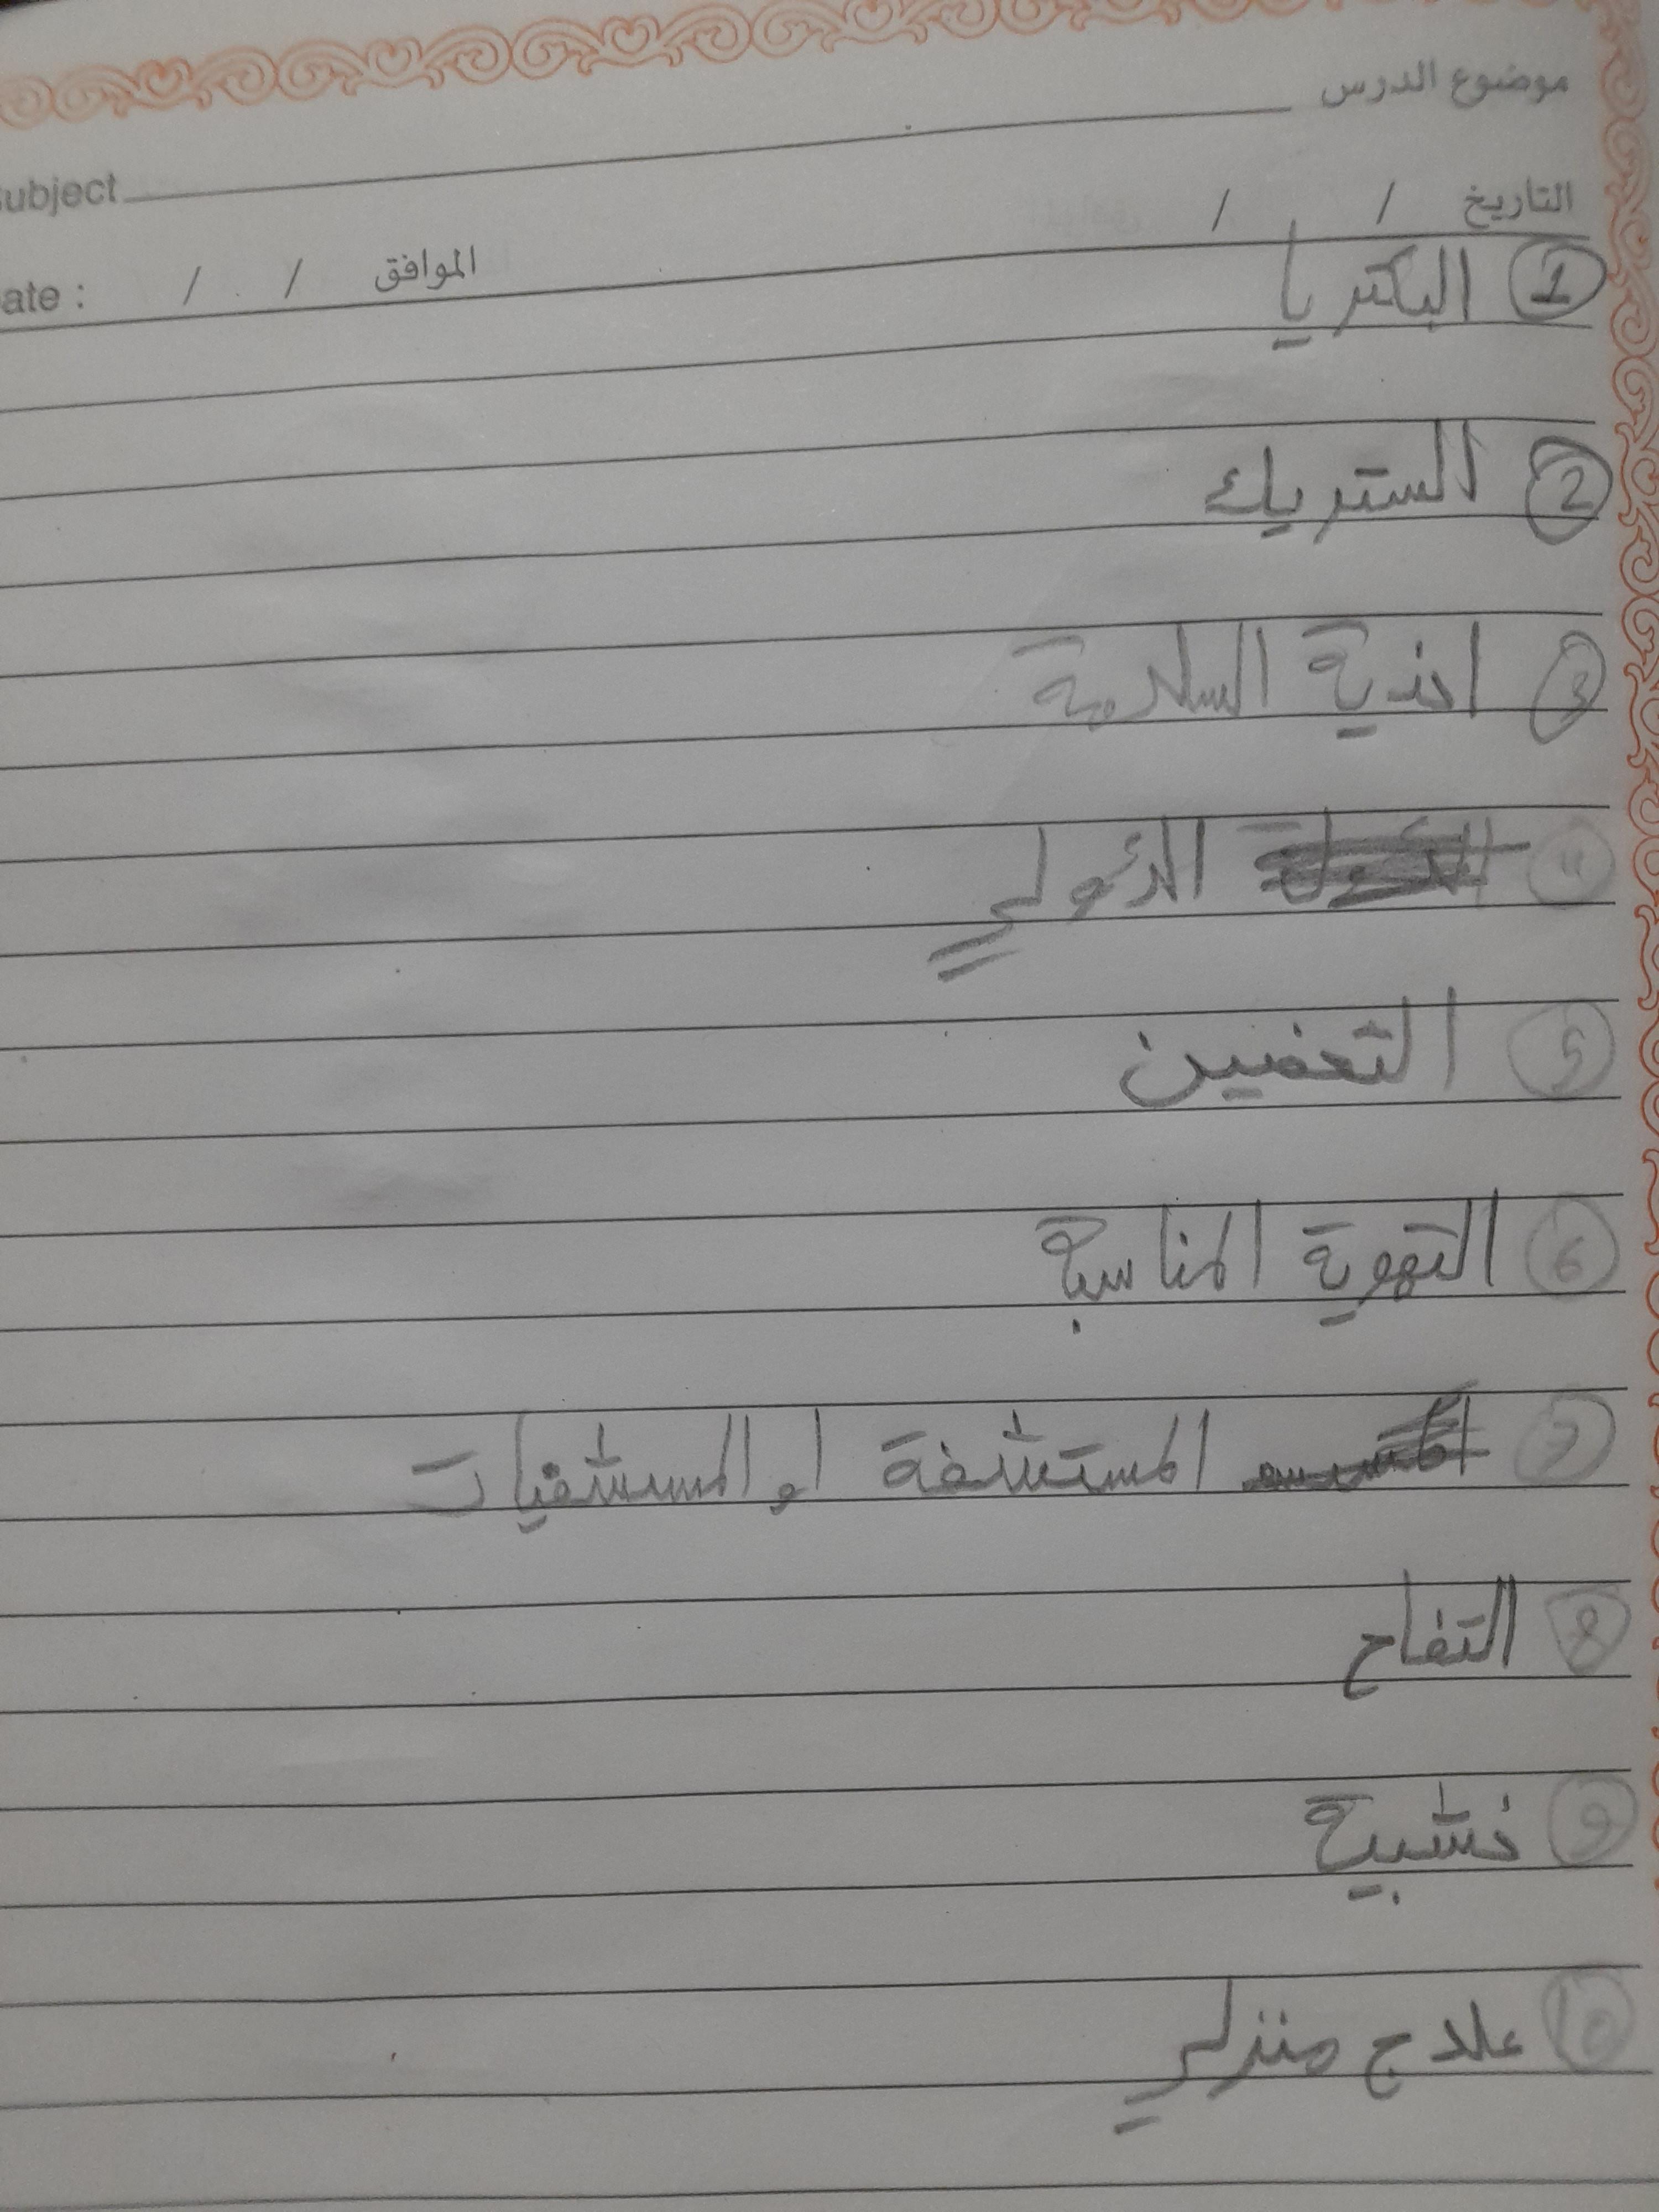 موضوع الدرس
Subject
التاريخ / /
الموافق / /
ate :
1 البكتريا
2 الستريك
3 احذية السلامة
4 الأولي
5 التعفين
6 التهوية المناسبة
7 المستشفة او المسشفيات
8 التفاح
9 خشبية
10 علاج منزلي